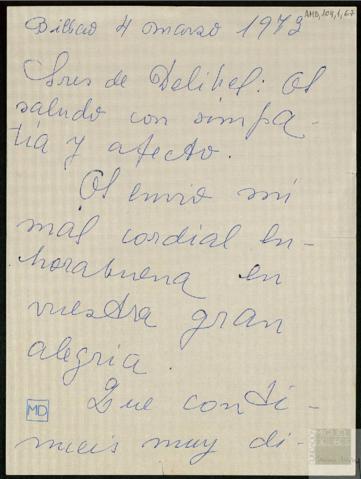 Bilbao 4 marzo 1973
AMD,104,1,67
Sres de Delibes: Os
saludo con simpa-
tía y afecto.
Os envio mi
mas cordial en-
horabuena en
vuestra gran
alegria.
MD
Que conti-
nueis muy di-